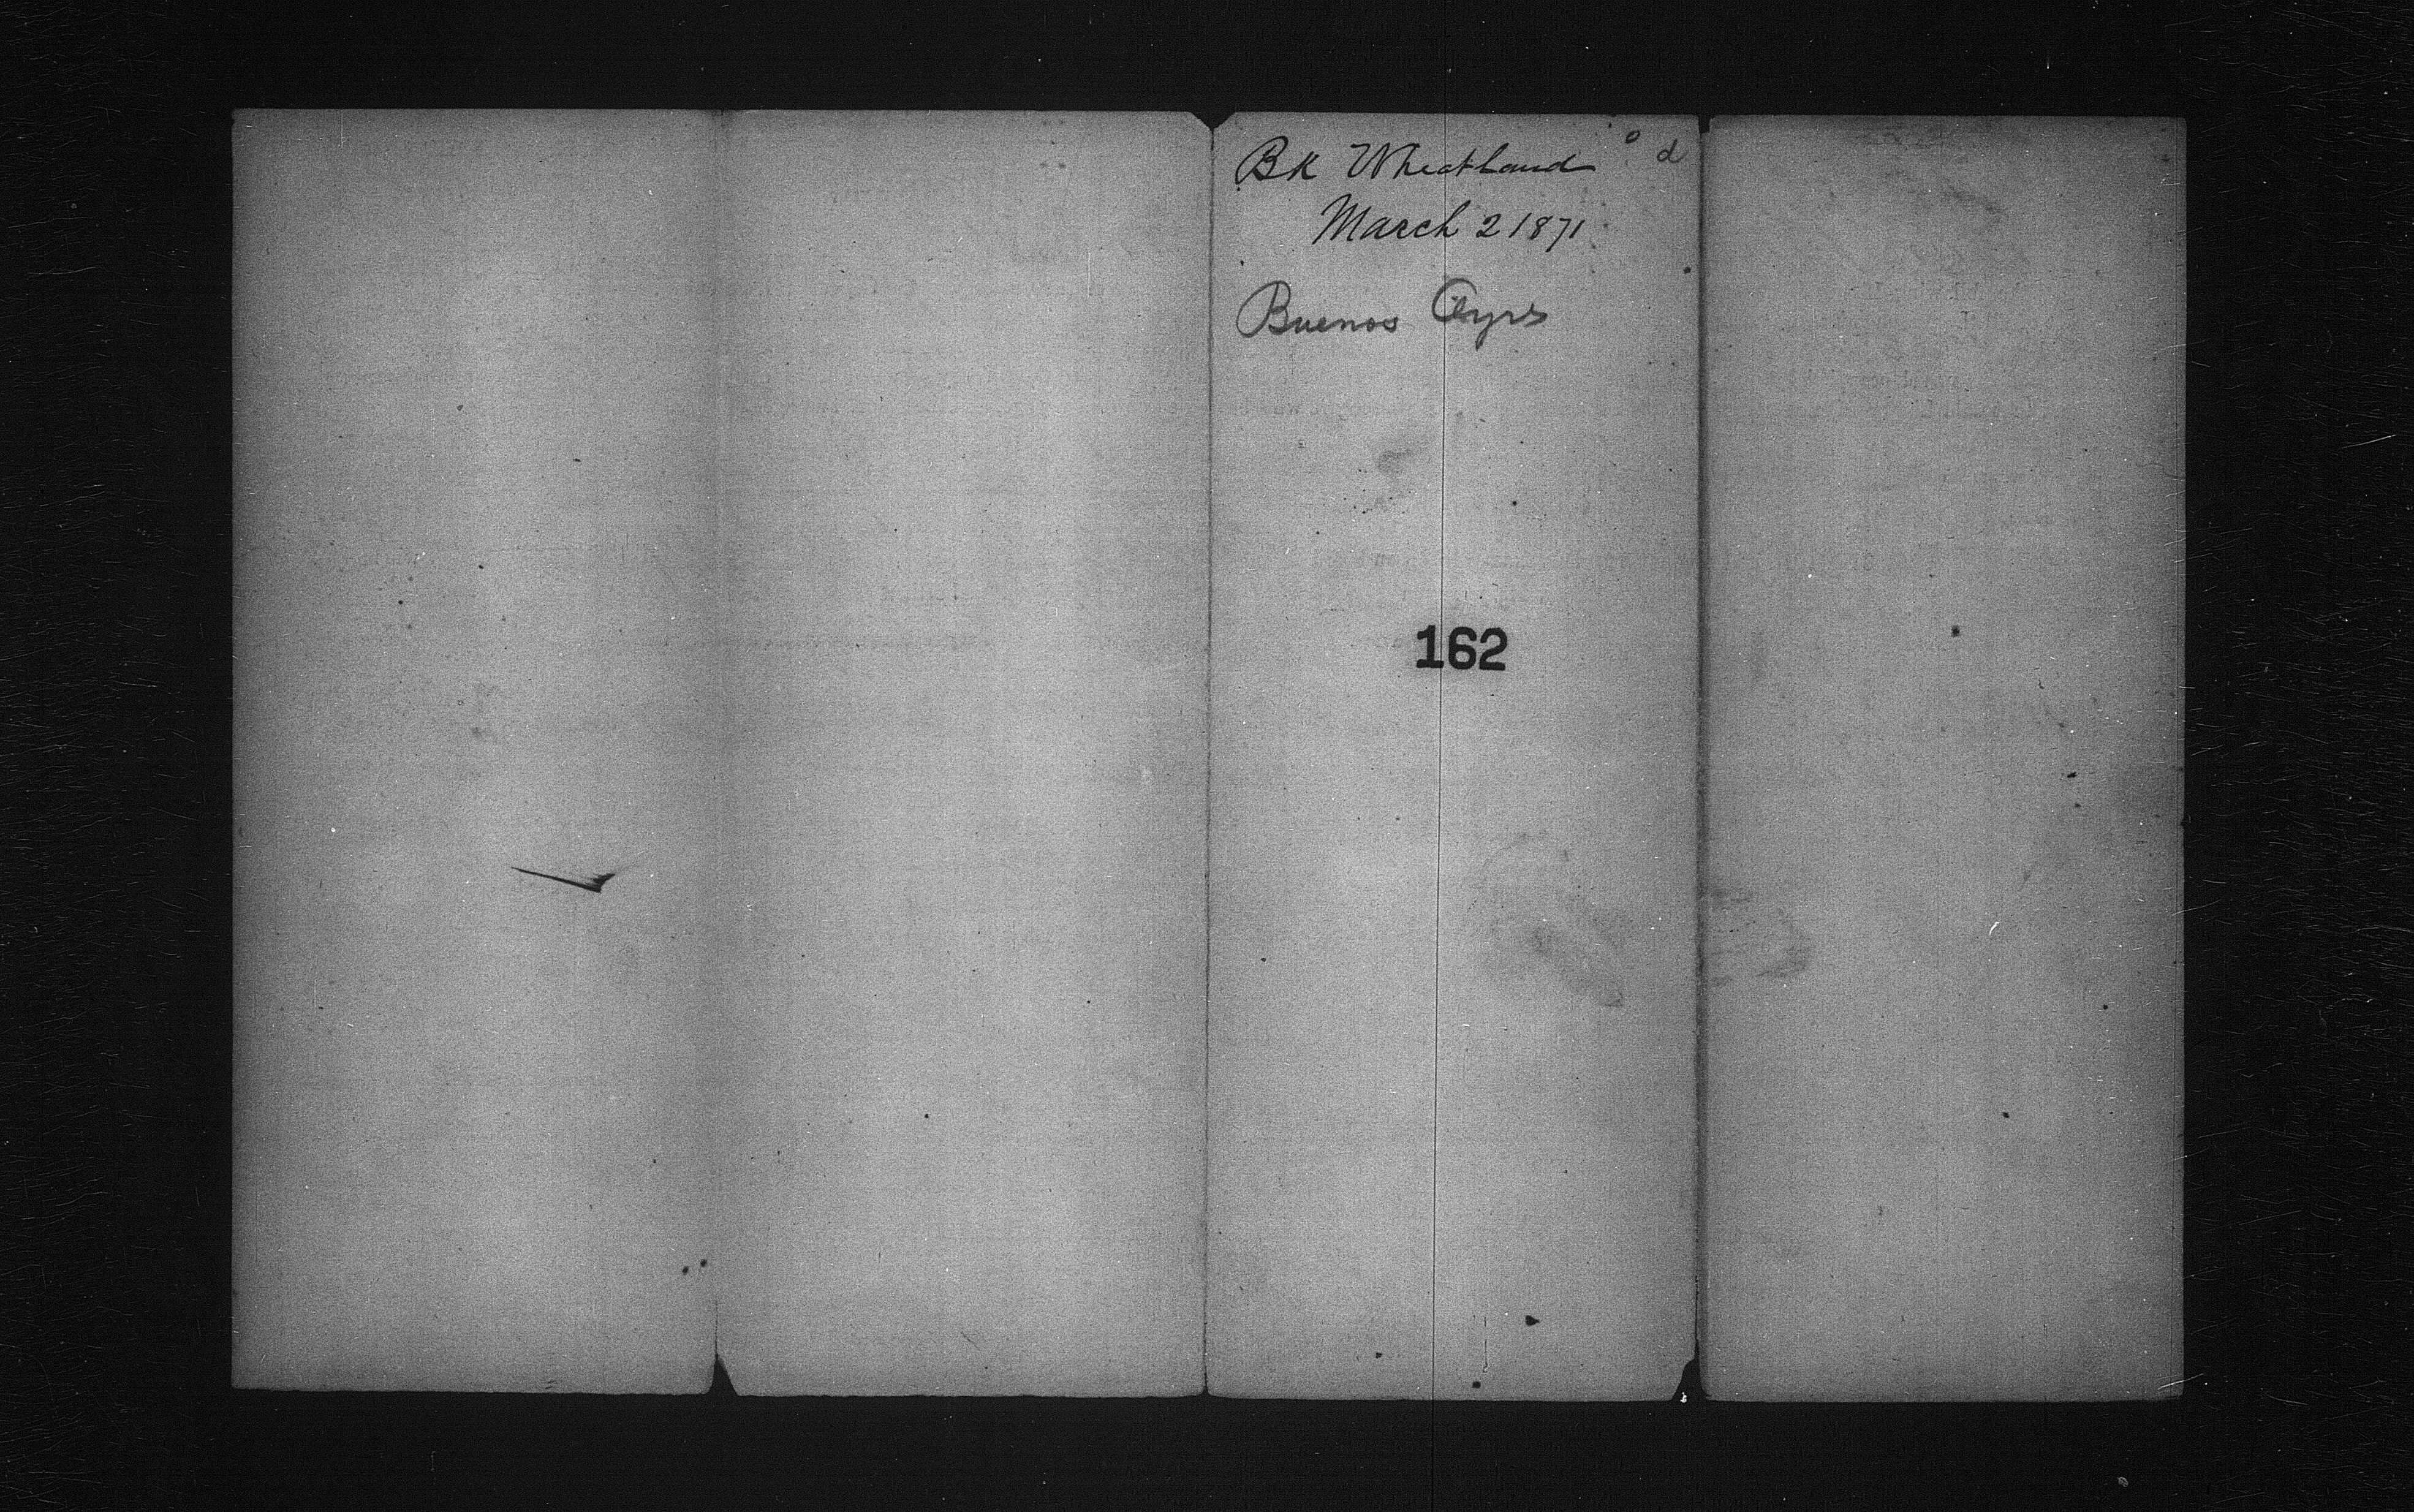 Bk Wheatland
March 2 1871
Buenos Ayrs
162